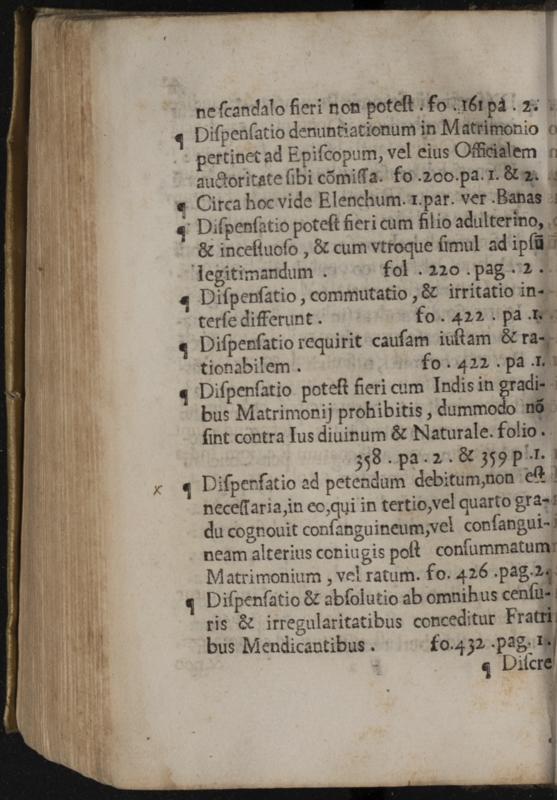 ne ſcandalo fieri non poteſt . fo . 161 pa . 2.
¶ Diſpenſatio denuntiationum in Matrimonio
pertinet ad Epiſcopum, vel eius Officialem
auctoritate ſibi cõmiſſa. fo .200.pa. 1. & 2.
¶ Circa hoc vide Elenchum. 1.par. ver .Banas
¶ Diſpenſatio poteſt fieri cum filio adulterino,
& inceſtuoſo , & cum vtroque ſimul ad ipſũ
legitimandum . fol . 220 . pag . 2 .
¶ Diſpenſatio , commutatio , & irritatio in-
terſe differunt . fo . 422 . pa .1.
¶ Diſpenſatio requirit cauſam iuſtam & ra-
tionabilem . fo . 422 . pa .1.
¶ Diſpenſatio poteſt fieri cum Indis in gradi-
bus Matrimonij prohibitis , dummodo nõ
ſint contra Ius diuinum & Naturale. folio .
358 . pa . 2 . & 359 p .1.
x ¶ Diſpenſatio ad petendum debitum,non eſt
neceſſaria,in eo,qui in tertio,vel quarto gra-
du cognouit conſanguineum,vel conſangui-
neam alterius coniugis poſt conſummatum
Matrimonium , vel ratum. fo. 426 .pag.2.
¶ Diſpenſatio & abſolutio ab omnibus cenſu-
ris & irregularitatibus conceditur Fratri
bus Mendicantibus . fo.432 .pag. 1.
¶ Diſcre